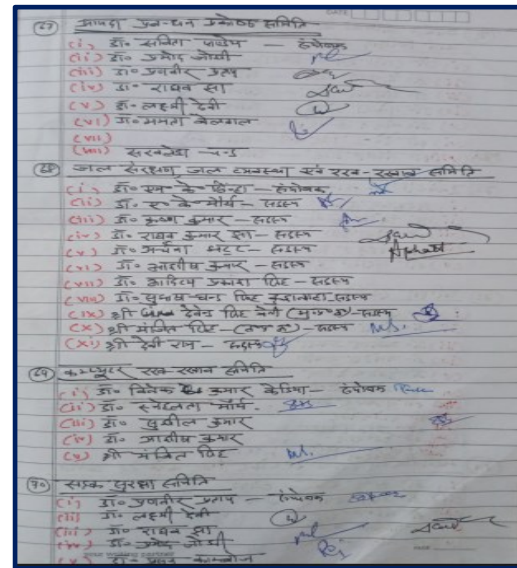 (67) आपदा प्रबन्धन प्रकोष्ठ समिति
(i) डॉ० सविता पाण्डेय — संयोजक
(ii) डॉ० प्रमोद जोशी
(iii) डॉ० प्रणवीर प्रताप
(iv) डॉ० राघव झा
(v) डॉ० लक्ष्मी देवी
(vi) डॉ० ममता बेलवाल
(vii)
(viii)
(68) जल संरक्षण, जल व्यवस्था एवं रख-रखाव समिति
(i) डॉ० एम० के० सिन्हा — संयोजक
(ii) डॉ० ए० के० मौर्य — सदस्य
(iii) डॉ० कृष्ण कुमार — सदस्य
(iv) डॉ० राघव कुमार झा — सदस्य
(v) डॉ० अर्चना भट्ट — सदस्य
(vi) डॉ० आशीष कुमार — सदस्य
(vii) डॉ० आदित्य प्रकाश सिंह — सदस्य
(viii) डॉ० सुभाष चन्द्र सिंह — सदस्य
(ix) श्री देवेन्द्र सिंह नेगी — सदस्य
(x) श्री मंजित सिंह — सदस्य
(xi) श्री देवी राम — सदस्य
(69) कम्प्यूटर रख-रखाव समिति
(i) डॉ० विवेक कुमार केडिया — संयोजक
(ii) डॉ० स्नेहलता मौर्य
(iii) डॉ० सुशील कुमार
(iv) डॉ० आशीष कुमार
(v) श्री मंजित सिंह
(70) सड़क सुरक्षा समिति
(i) डॉ० प्रणवीर प्रताप — संयोजक
(ii) डॉ० लक्ष्मी देवी
(iii) डॉ० राघव झा
(iv) डॉ० प्रमोद जोशी
(v) डॉ०